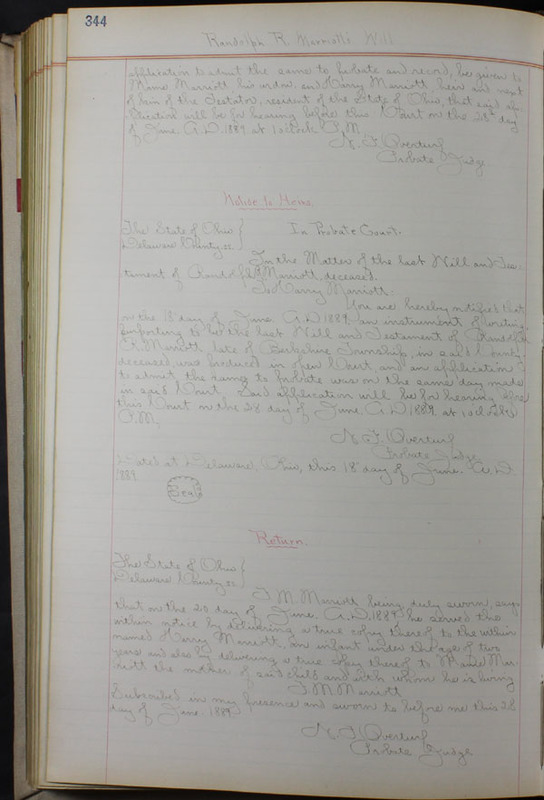 344
Randolph R. Marriott's Will
application to admit the same to probate and record, be given to
Mamie Marriott his widow and Harry Marriott heir and next
of kin of the Testator, resident of the State of Ohio, that said ap-
plication will be for hearing before this Court on the 28" day
of June A.D. 1889 at 1 o'clock P.M.
N. F. Overturf
Probate Judge
Notice to Heirs.
The State of Ohio }
Delaware County ss. }
In Probate Court.
In the Matter of the last Will and Tes-
tament of Randolph R. Marriott, deceased.
To Harry Marriott:
You are hereby notified that
on the 18 day of June A.D. 1889 an instrument of writing
purporting to be the last Will and Testament of Randolph
R. Marriott, late of Berkshire Township, in said County
deceased, was produced in open Court and an application
to admit the same to probate was on the same day made
in said Court. Said application will be for hearing before
this Court on the 28 day of June A.D. 1889 at 1 o'clock
P.M.
N. F. Overturf
Probate Judge
Dated at Delaware, Ohio, this 18" day of June A.D.
1889.
Seal
Return.
The State of Ohio }
Delaware County ss. }
T. M. Marriott being duly sworn, says
that on the 20 day of June A.D. 1889 he served the
within notice by delivering a true copy thereof to the within
named Harry Marriott, an infant under the age of two
years and also by delivering a true copy thereof to Mamie Mar-
riott the mother of said child and with whom he is living
T. M. Marriott
Subscribed in my presence and sworn to before me this 28
day of June, 1889.
N. F. Overturf
Probate Judge